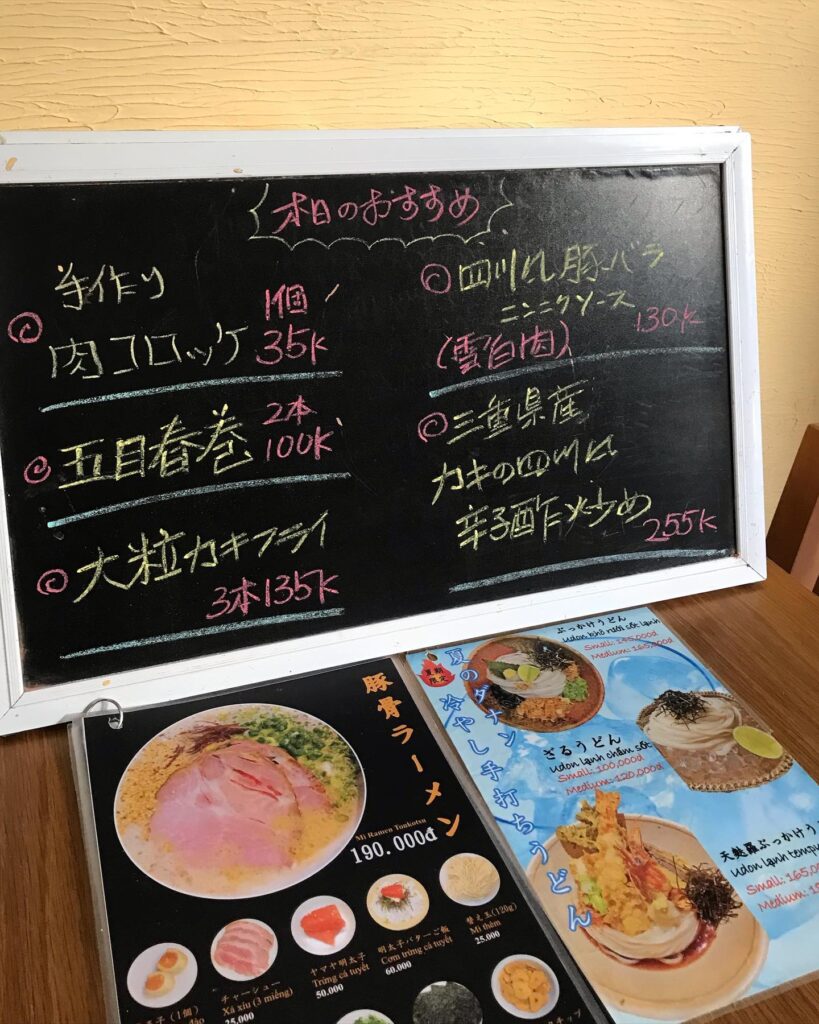 本日のおすすめ
手作り
肉コロッケ
1個
35K
五目春巻
2本
100K
大粒カキフライ
3本135K
四川風豚バラ
ニンニクソース
(雲白肉)
130K
三重県産
カキの四川風
辛子酢炒め
255K
豚骨ラーメン
Mì Ramen Tonkotsu
190.000đ
チャーシュー
Xá xíu (3 miếng)
25.000
ヤマヤ明太子
Trứng cá tuyết
50.000
明太子バターご飯
Cơm trứng cá tuyết
60.000
替え玉(120g)
Mì thêm
25.000
夏期
限定
夏のダナン
冷やし手打ちうどん
ぶっかけうどん
Udon khô rưới sốt lạnh
Small: 145,000đ
Medium: 165,000đ
ざるうどん
Udon lạnh chấm sốt
Small: 100,000đ
Medium: 120,000đ
天麩羅ぶっかけうどん
Udon lạnh
Small: 165,
Medium: